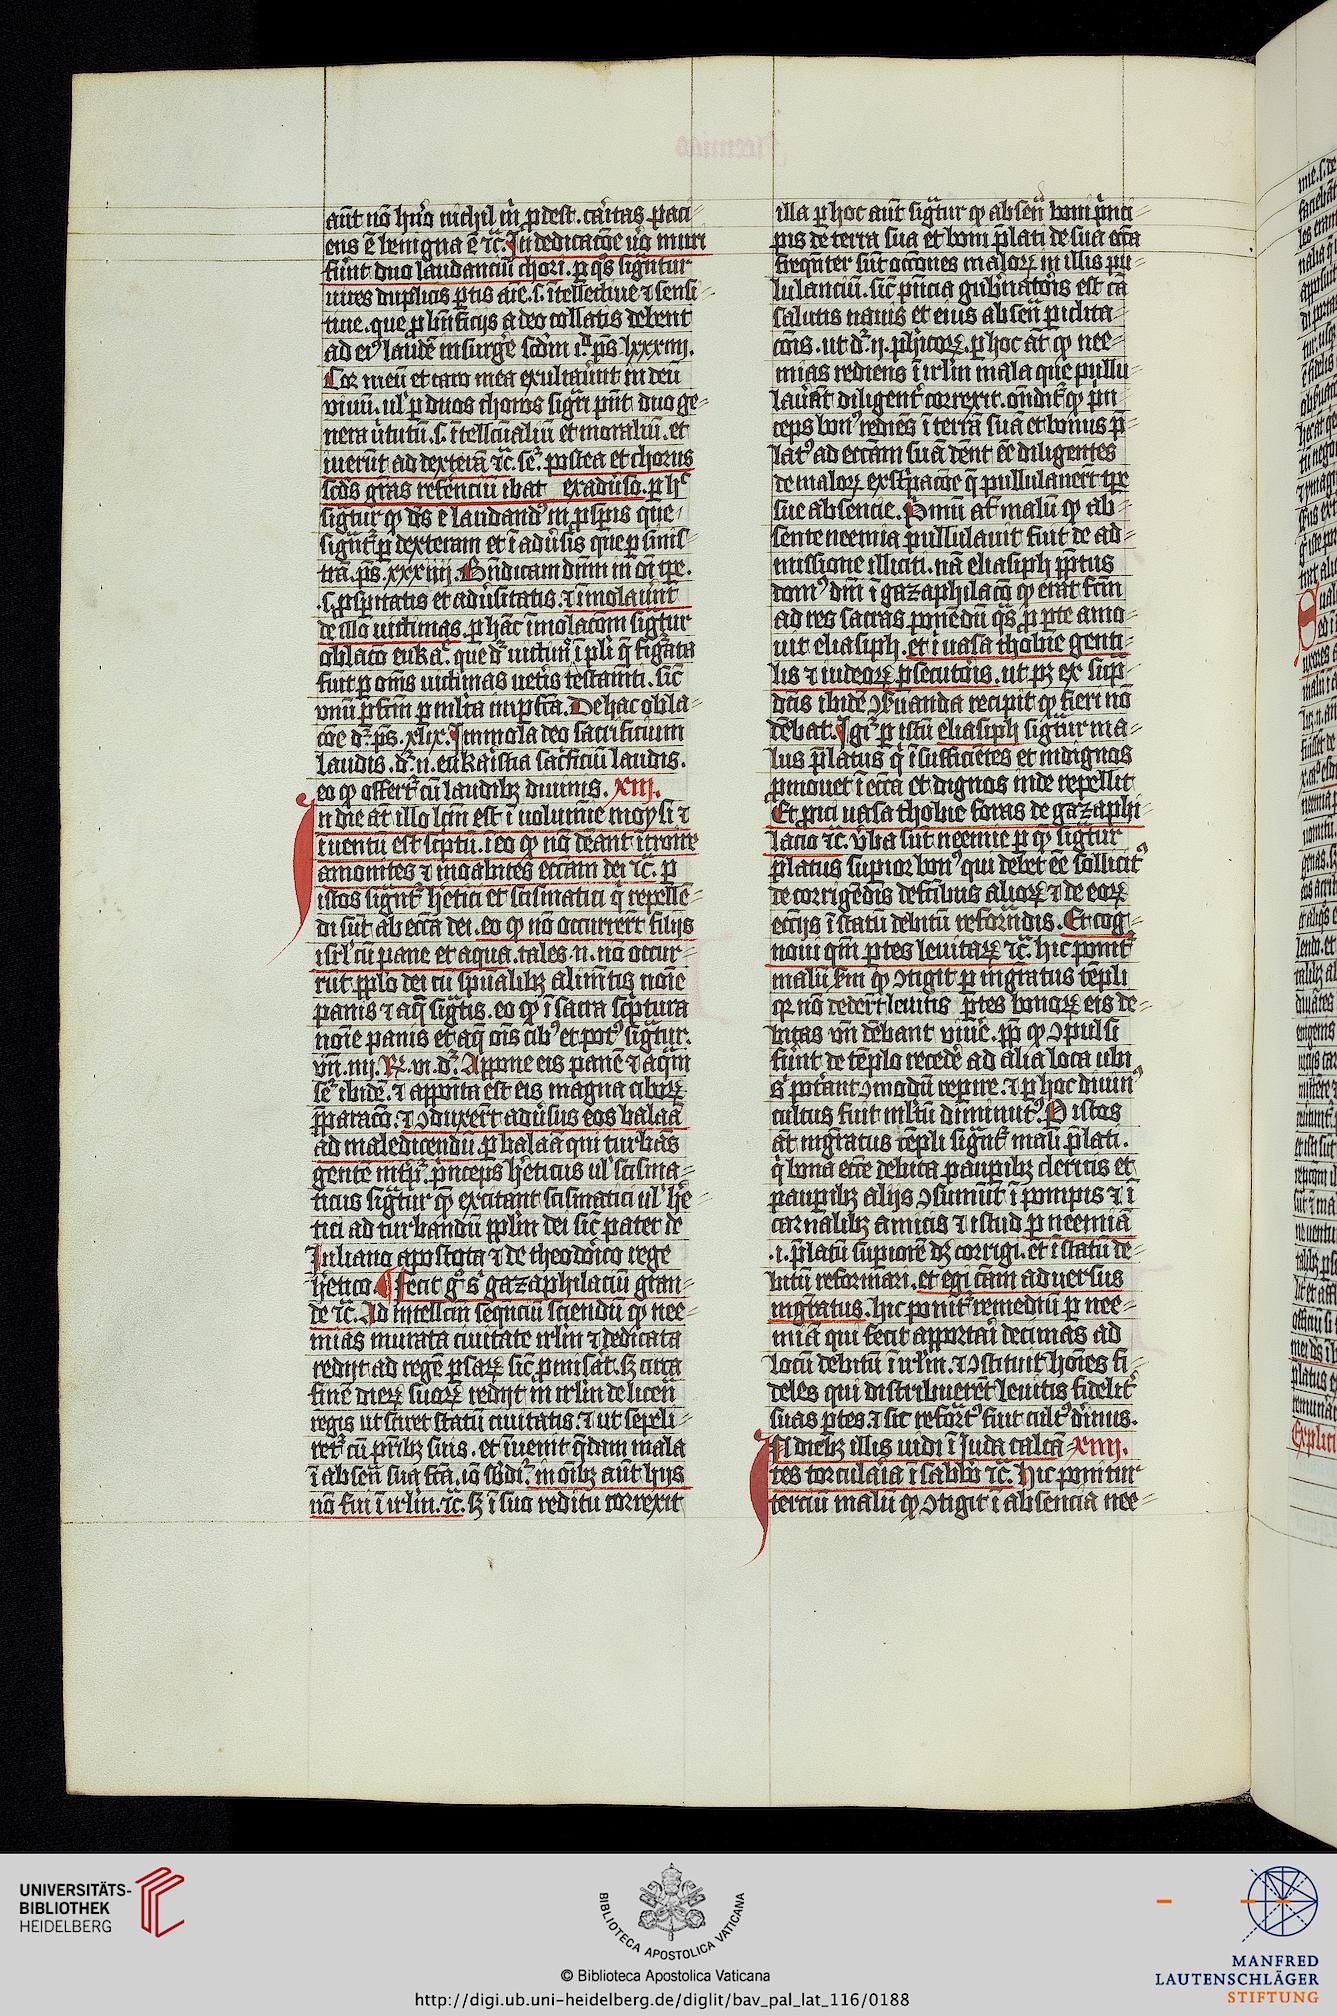 aūt nō hn̄o nichil m̄ ꝓdest. caritas paci
ens ē benigna ē ⁊c̄. In dedicacōe v̄o muri
fūnt duo laudanciū chori. ꝑ qͦs sigͣntur
vires duplicis ꝑtis aīe. s. ītellectiue ⁊ sensi
tiue. que ꝑ bn̄ficijs a deo collatis debent
ad eiꝰ laudē insurgˀe scd̄m iᵈ ps lxxxiij.
Cor meū et caro mea exultaūnt in deū
viuū. ul̓ ꝑ duos choros sigͣri pn̄t duo ge
nera v̓tutū. s. ītellcūaliū et moraliū. et
iuerūt ad dexterā ⁊c̄. seꝫ. postea et chorus
scd̄s gr̄as referenciū ibat exaduso. ꝑ hͨ
sigͣtur ꝙ dꝰs ē laudandꝰ in ꝓspis que
sigͣntꝫ ꝑ dexteram et ī adūsis que ꝑ simis
trā. ps. xxxiij. Bn̄dicam dn̄m in oī tꝑe.
.s. ꝓspitatis et adūsitatis. ⁊ īmolaūnt
de illo victimas. ꝑ hāc īmolacom̄ sigͣtur
oblacō eukaͤ. que dꝫ victīa ī pli q̄ figͣata
fuit ꝑ om̄s victimas vetis testamti. sic̄
vnū ꝑfcm̄ ꝑ mlta inꝑfcā. De hac obla
cōe dꝫ. ps. xlix. Immola deo sacrificium
laudis. dꝫ. n. eukaistia sacficiū laudis.
eo ꝙ offertꝫ cū laudibꝫ diuinis. xiij.
In die at̄ illo lcm̄ est ī volumīe moysi ⁊
īuentū est scptū. ī eo ꝙ nō dēant ītroire
amonites ⁊ moabites eccām dei ⁊c̄. ꝑ
istos sigͣntꝫ hˀetici et scismatici q̓ repelle
di sūt ab eccā dei. eo ꝙ nō occurrert filijs
isrl̓ cū pane et aqua. tales .n. nō occur
rūt pplo dei cū spualibꝫ alimtis noīe
panis ⁊ aq̄ sigͣtis. eo ꝙ ī sacra scptura
noīe panis et aq̄ oīs cibꝰ et potꝰ sigͣtur.
vn̄. iiij. R. vi. dꝫ. Appone eis panē ⁊ aqͣm
seꝫ ibidē. ⁊ apposita est eis magna ciboꝝ
p̄paracō. ⁊ ꝯduxert adūsus eos balaā
ad maledicendū. ꝑ balaā qui turbās
gentē intpꝫ. pͥnceps hˀeticus ul̓ scisma
ticus sigͣtur quē excitant scismatici ul̓ hˀe
tici ad turbandū pplm̄ dei sic̄ patet de
Iuliano apostota ⁊ de theodoico rege
hˀetico. Fecit gͦ sͥ gazaphilaciū gran
de ⁊c̄. Ad intellcm̄ sequēciū sciendū ꝙ nee
mias murata ciuitate irlm̄ ⁊ dedicata
redijt ad regē ꝑsaꝝ sic̄ ꝓmisāt. sꝫ circa
finē dieꝝ suoꝝ redijt in irlm̄ de licen̄
regis ut sciret statū ciuitatis. ⁊ ut sepeli
retꝫ cū pͥribꝫ suis. et īuenit qͣdam mala
ī absen̄ sua fcā. iō sbdiꝫ. in oībꝫ aūt hijs
nō fui ī irlm̄. ⁊c̄. sꝫ ī suo reditu correxit
illa ꝑ hoc aūt sigͣtur ꝙ absen̄ boni pͥnci
pis de terra sua et boni p̄lati de sua eccā
freqn̄ter sūt occōnes maloꝝ in illis pu
lulanciū. sic̄ pn̄cia gub̓natoris est cā
salutis nauis et eius absen̄ ꝑiclita
cōis. ut dꝫ. ij. phicoꝝ. ꝑ hoc āt ꝙ nee
mias rediens ī irlm̄ mala que pullu
lauāt diligentˀ correxit. ondītꝫ ꝙ pn̄
ceps bonꝰ rediēs ī terrā suā et bonus p̄
latꝰ ad eccām suā dent eē diligentes
de maloꝝ exstͥpacōe q̄ pullulauert tꝑe
sue absencie. Pͥmū at̄ malū ꝙ ab
sente neemia pullulauit fuit de ad
missione illiciti. nā eliasiph ppͦitus
domꝰ dn̄i ī gazaphilacō ꝙ erat fcm̄
ad res sacras ponēdū qͣs ꝓ pte amo
uit eliasiph. et ī vasa thobie genti
lis ⁊ iudeoꝝ ꝑsecutoris. ut pꝫ ex supͣ
dcīs ibidē ꝯseruanda recipit ꝙ fieri nō
debat. Igiꝫ ꝑ istū eliasiph sigͣtur ma
lus p̄latus q̓ īsufficiētes et indignos
ꝓmouet ī eccā et dignos inde repellit
Et ꝓici vasa thobie foras de gazaphi
lacio ⁊c̄. Vba sūt neemie ꝑ qᵈ sigͣtur
p̄latus supior bonꝰ qui debet eē sollicitꝰ
de corrigēdis defcibus alioꝝ ⁊ de eoꝝ
eccijs ī statū debitū reformdis. Et cog
noui qm̄ ꝑtes leuitaꝝ ⁊c̄. hic ponitꝫ
malū scm̄ ꝙ ꝯtigit ꝑ ingͣtus tēpli
qꝛ nō dedert leuitis ꝑtes bonoꝝ eis de
bitas vn̄ debant viuˀe. ppͣ ꝙ ꝯpulsi
fūnt de tēplo recedˀe ad alia loca ubi
sͥ potant ꝯmodū repire. ⁊ ꝑ hoc diuinꝰ
cultus fuit mltū diminutꝰ. P istos
āt ingͣtus tēpli sigͣntꝫ mali p̄lati.
q̓ bona ecce debita paupibꝫ clericis et
paupibꝫ alijs ꝯsumūt ī pompis ⁊ ī
carnalibꝫ amicis ⁊ istud ꝑ neemiā
.i. p̄latū supiorē dꝫ corrigi. et ī statū de
bitū reformari. et egi cām aduersus
ingͣtus. hic ponitꝫ remediū ꝑ nee
miā qui fecit apportaī decimas ad
locū debitū ī irlm̄. ⁊ ꝯstituit hoīes fi
deles qui distribuerēt leuitis fidelitˀ
suas ꝑtes. ⁊ sic reforꝰ fuit cultꝰ diīnus.
In diebꝫ illis vidi ī Iuda calcā xiiij.
tes torcularia ī sabbō ⁊c̄. Hic ponitur
terciū malū ꝙ ꝯtigit ī absencia nee
UNIVERSITÄTS-
BIBLIOTHEK
HEIDELBERG
BIBLIOTECA APOSTOLICA VATICANA
© Biblioteca Apostolica Vaticana
http://digi.ub.uni-heidelberg.de/diglit/bav_pal_lat_116/0188
MANFRED
LAUTENSCHLÄGER
STIFTUNG